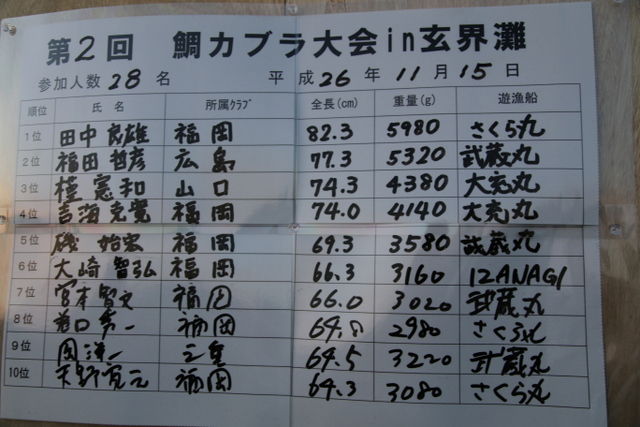 第2回 鯛カブラ大会in玄界灘
参加人数 28 名 平成 26 年 11 月 15 日
順位 氏名 所属クラブ 全長(cm) 重量(g) 遊漁船
1位 田中良雄 福岡 82.3 5980 さくら丸
2位 福田哲彦 広島 77.3 5320 武蔵丸
3位 憲和 山口 74.3 4380 大充丸
4位 吉海克寛 福岡 74.0 4140 大充丸
5位 磯始宏 福岡 69.3 3580 武蔵丸
6位 大崎智弘 福岡 66.3 3160 IZANAGI
7位 宮本智文 福岡 66.0 3020 武蔵丸
8位 福岡 2980 さくら丸
9位 洋一 三重 64.5 3220 武蔵丸
10位 天野寛元 福岡 64.3 3080 さくら丸